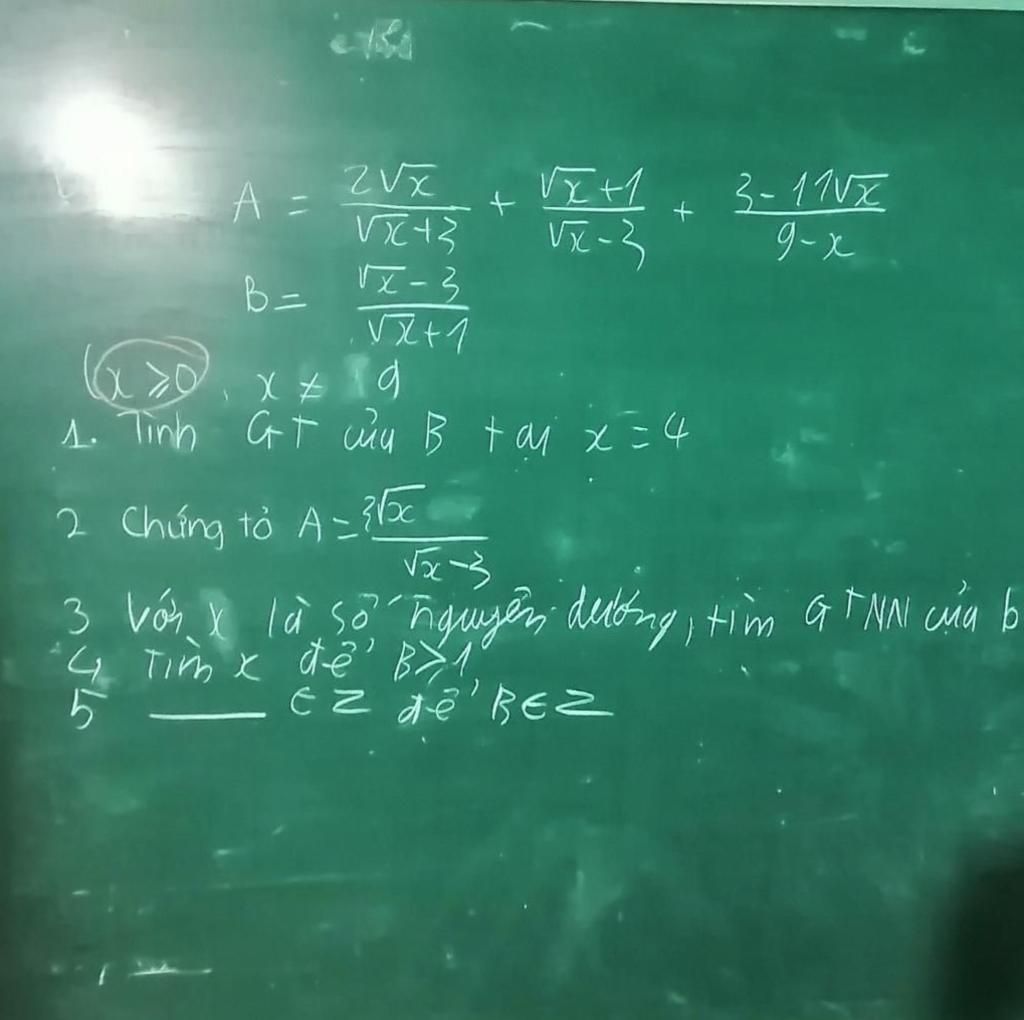 A = 2√x/(√x+3) + (√x+1)/(√x-3) + (3-11√x)/(9-x)
B = (√x-3)/(√x+1)
(x ⩾ 0, x ≠ 9
1. Tính GT của B tại x = 4
2 Chứng tỏ A = 3√x/(√x-3)
3 Với x là số nguyên dương, tìm GTNN của b
4 Tìm x để B > 1
5 ____ ∈ Z để B ∈ Z